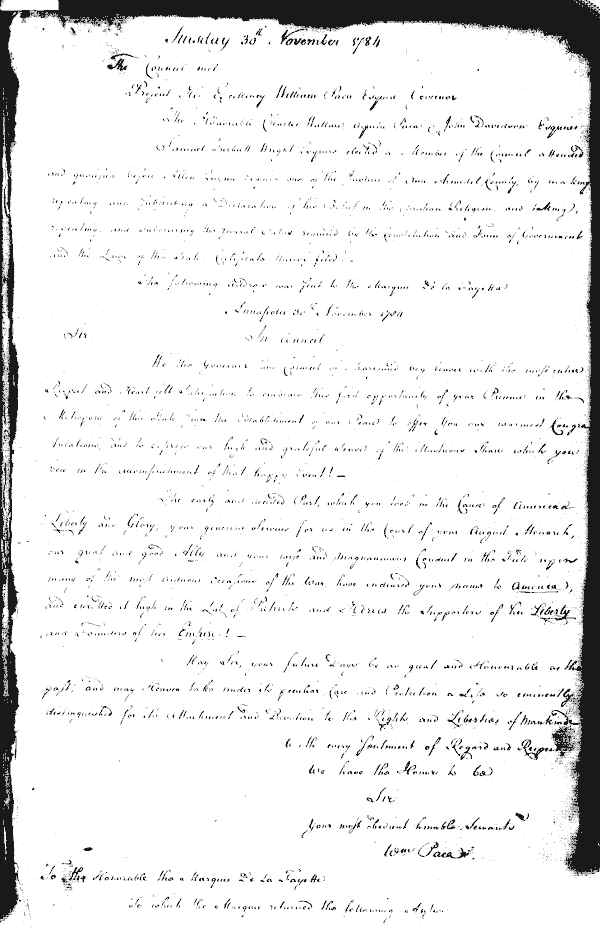 Tuesday 30th November 1784
The Council met
Present His Excellency William Paca Esquire Governor
The Honorable Charles Wallace Aquila Paca & John Davidson Esquires
Samuel Turbutt Wright Esquire elected a Member of the Council attended
and qualified before Allen Quynn Esquire one of the Justices of Ann Arundel County, by making
repeating and subscribing a Declaration of his Belief in the Christian Religion, and taking,
repeating, and subscribing the several Oaths required by the Constitution and Form of Government
and the Laws of this State. Certificate thereof filed. —
The following Address was sent to the Marquis De la Fayette
Annapolis 30th November 1784
Sir In Council
We the Governor and Council of Maryland beg leave with the most entire
Respect and Heart felt Satisfaction to embrace this first opportunity of your Presence in the
Metropolis of this State, since the Establishment of our Peace to offer You our warmest Congra
tulations, and to express our high and grateful Sense of the illustrious Share which you
bore in the accomplishment of that happy Event! —
The early and decided Part, which you took in the Cause of American
Liberty and Glory, your generous Services for us in the Court of your August Monarch,
our great and good Ally and your wise and magnanimous Conduct in the Field upon
many of the most arduous Occasions of the War, have endeared your name to America,
and enrolled it high in the List of Patriots and Heroes the Supporters of her Liberty
and Founders of her Empire! —
May Sir, your future Days be as great and Honourable as the
past; and may Heaven take under its peculiar Care and Protection a Life so eminently
distinguished for its Attachment and Devotion to the Rights and Liberties of Mankind
With every Sentiment of Regard and Respect
We have the Honor to be
Sir
Your most obedient humble Servants
Wm Paca
To the Honorable the Marquis De La Fayette
To which the Marquis returned the following Answer